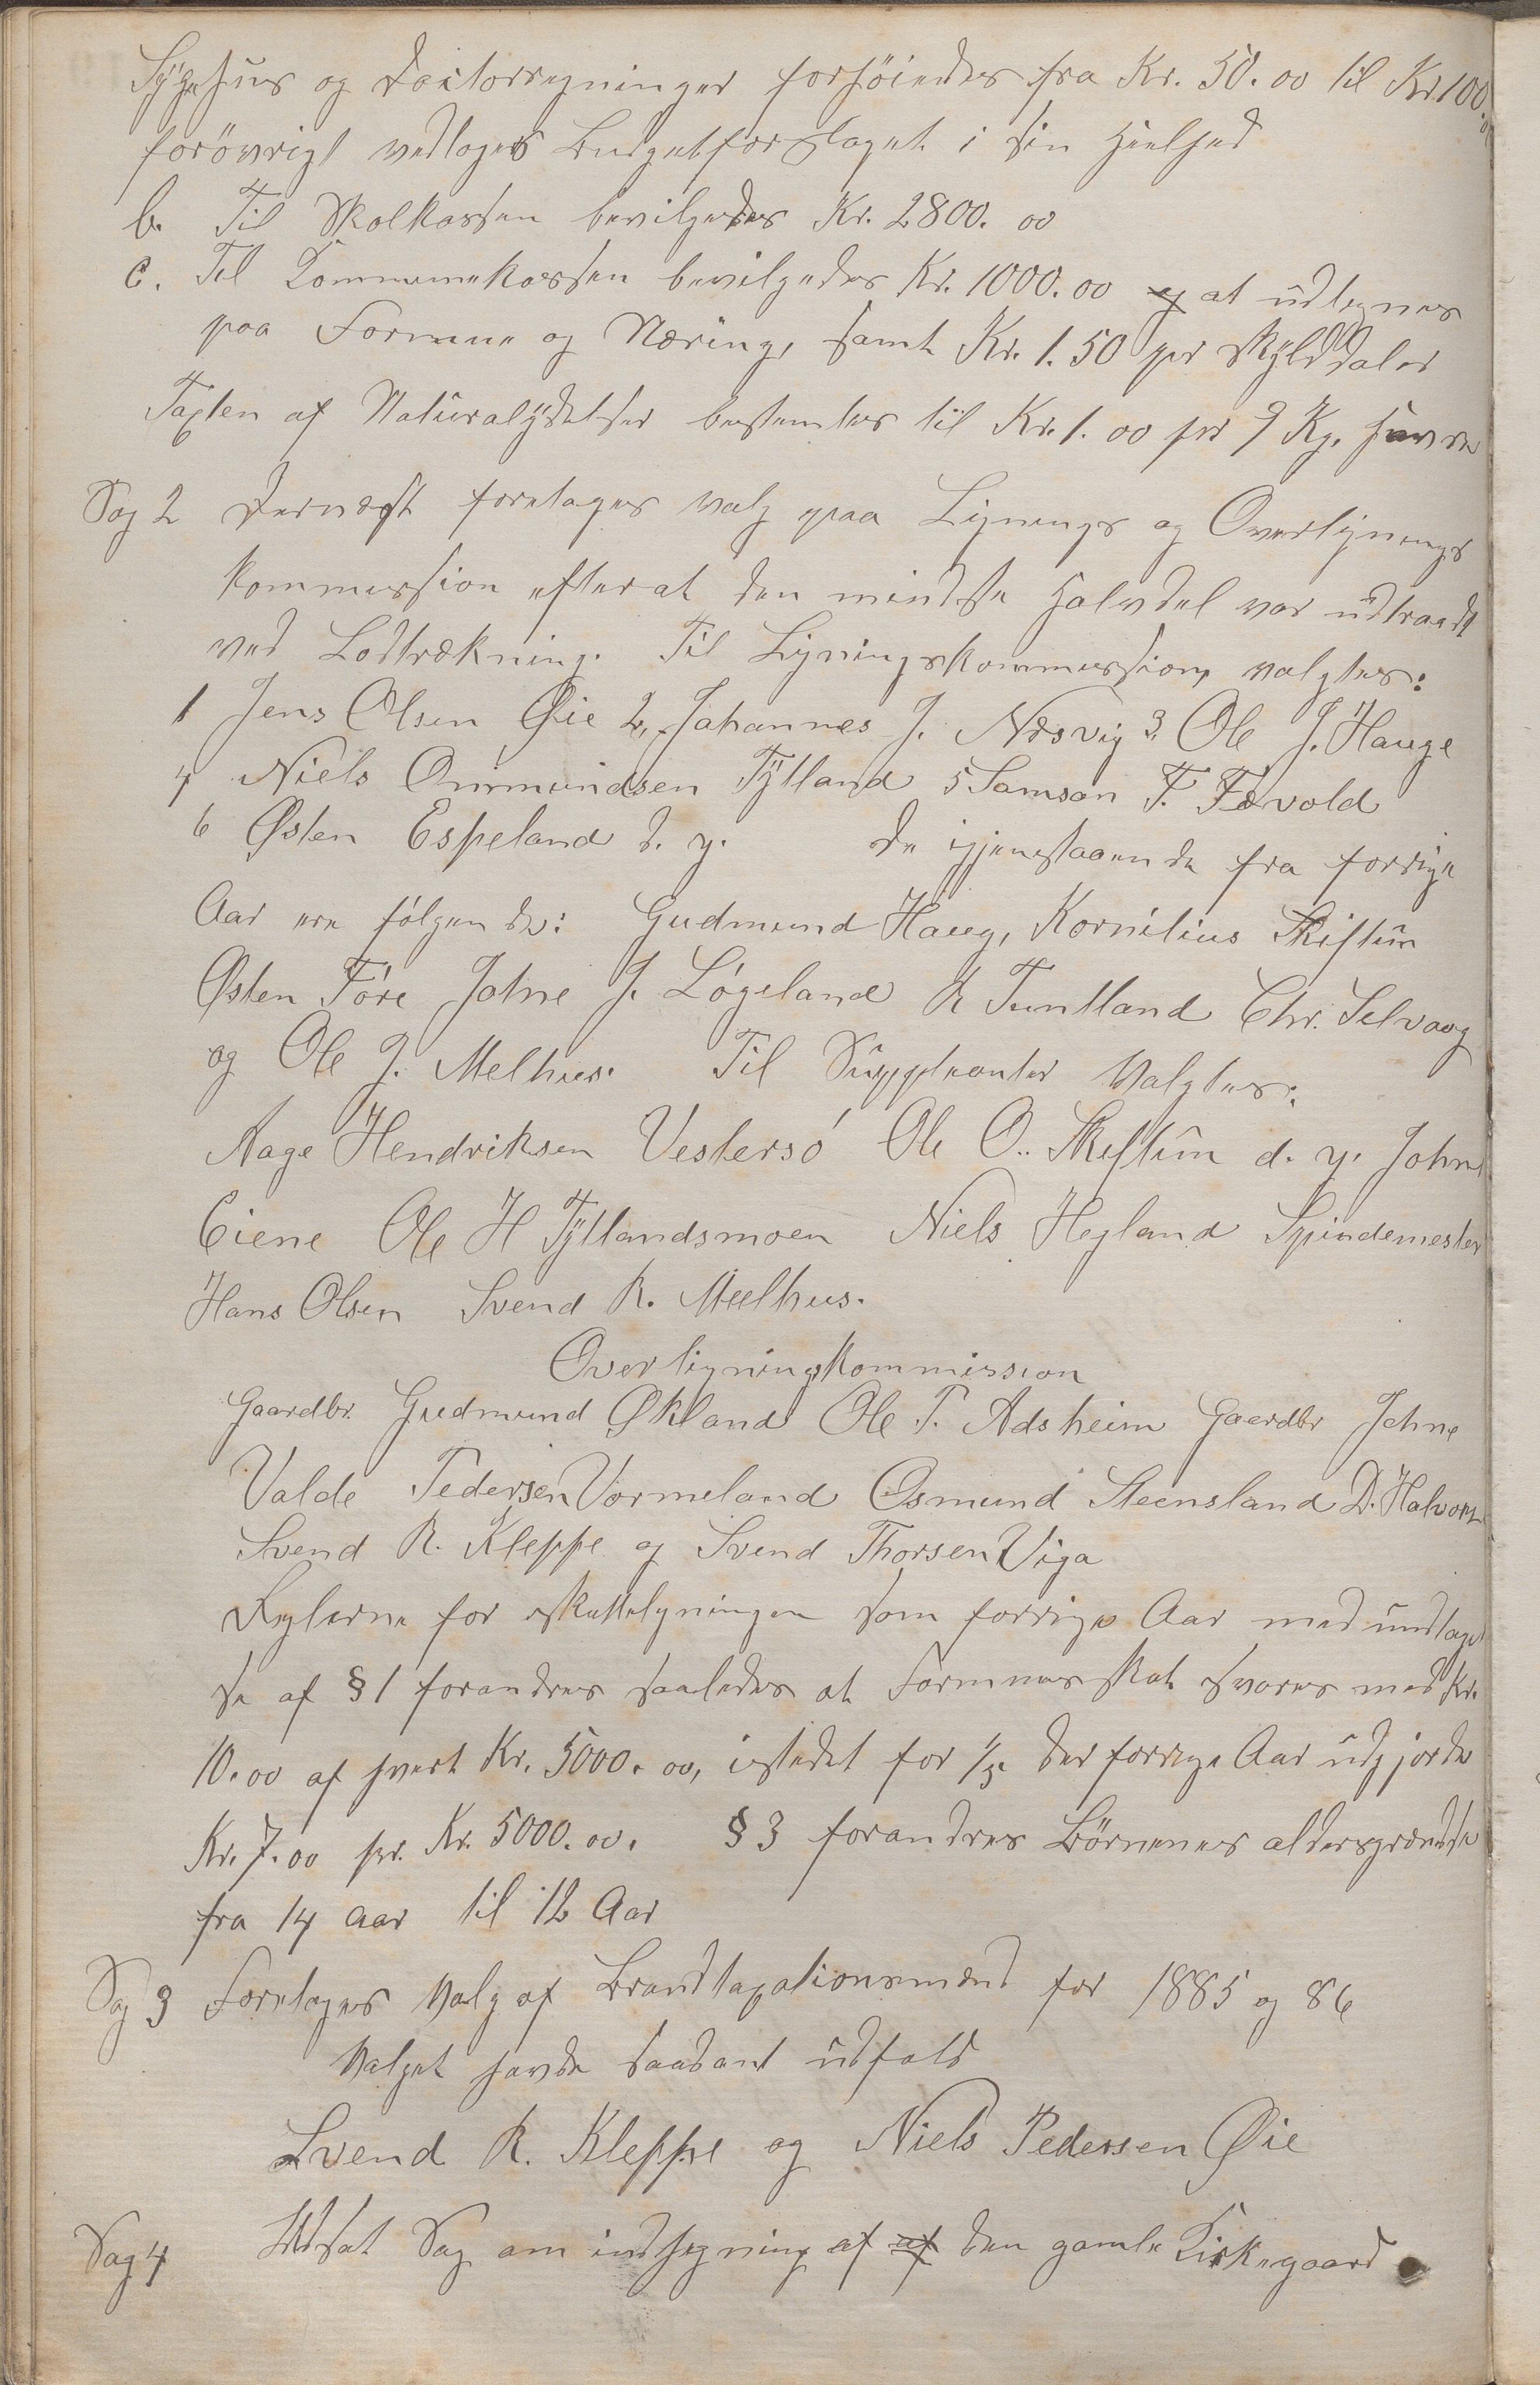 Sygehus og Doctorregninger forhöiedes fra Kr. 50.00 til Kr 100.
forövrigt vedtages Budgetforslaget i sin Heelhed
b. Til Skolkassen bevilgedes Kr. 2800.00
c. Til Kommunekassen bevilgedes Kr. 1000.00 og at udlignes
paa Formue og Næring, samt Kr. 1.50 pr Skylddaler
Taxten af Naturalydelser bestemtes til Kr. 1.00 pr 9 Kg. havre
Sag 2 Dernæst foretages valg paa Lignings og Overlignings
kommission efterat den mindste Halvdel var udtraadt
ved Lodtrækning. Til Ligningskommission valgtes:
1 Jens Olsen Øie 2, Johannes J. Næsvig 3. Ole J. Hauge
4 Niels Ommundsen Tytland 5 Samson T. Fævold
6 Østen Espeland d. y. De igjenstaaende fra forrige
Aar ere følgende: Gudmund Haug, Kornilius Skiftun
ØstenFöre Johne J. Lögeland R Tuntland Chr. Selvaag
og Ole J. Melhus. Til Suppleanter Valgtes:
Aage Hendriksen Vestersö Ole O. Skiftun d. y. John
Eiene Ole H Tytlandsmoen Niels Hegland Spindemester
Hans Olsen Svend R. Meelhus.
Overligningskommission
Gaardbr. Gudmund Økland Ole T. Adsheim Gaardbr Johne
Valde Pedersen Vormeland Osmund Steensland D. Halvors
Svend R. Kleppe og Svend Thorsen Viga
Reglerne for skatteligningen som forrige Aar med undtagel
se af § 1 forandres saaledes at Formuesskat svares med Kr.
10.00 af hvert Kr. 5000.00, istedet for 1/5 der forrige Aar udgjorde
Kr. 7.00 pr. Kr. 5000.00. § 3 forandres Börnenes aldersgrændse
fra 14 aar til 12 Aar
Sag 3 Foretages Valg af Brandtaxationsmænd for 1885 og 86
Valget havde saadant udfald
Svend R. Kleppe og Niels Pedersen Øie
Sag 4 Udsat Sag om indhegning af af den gamle Kirkegaard